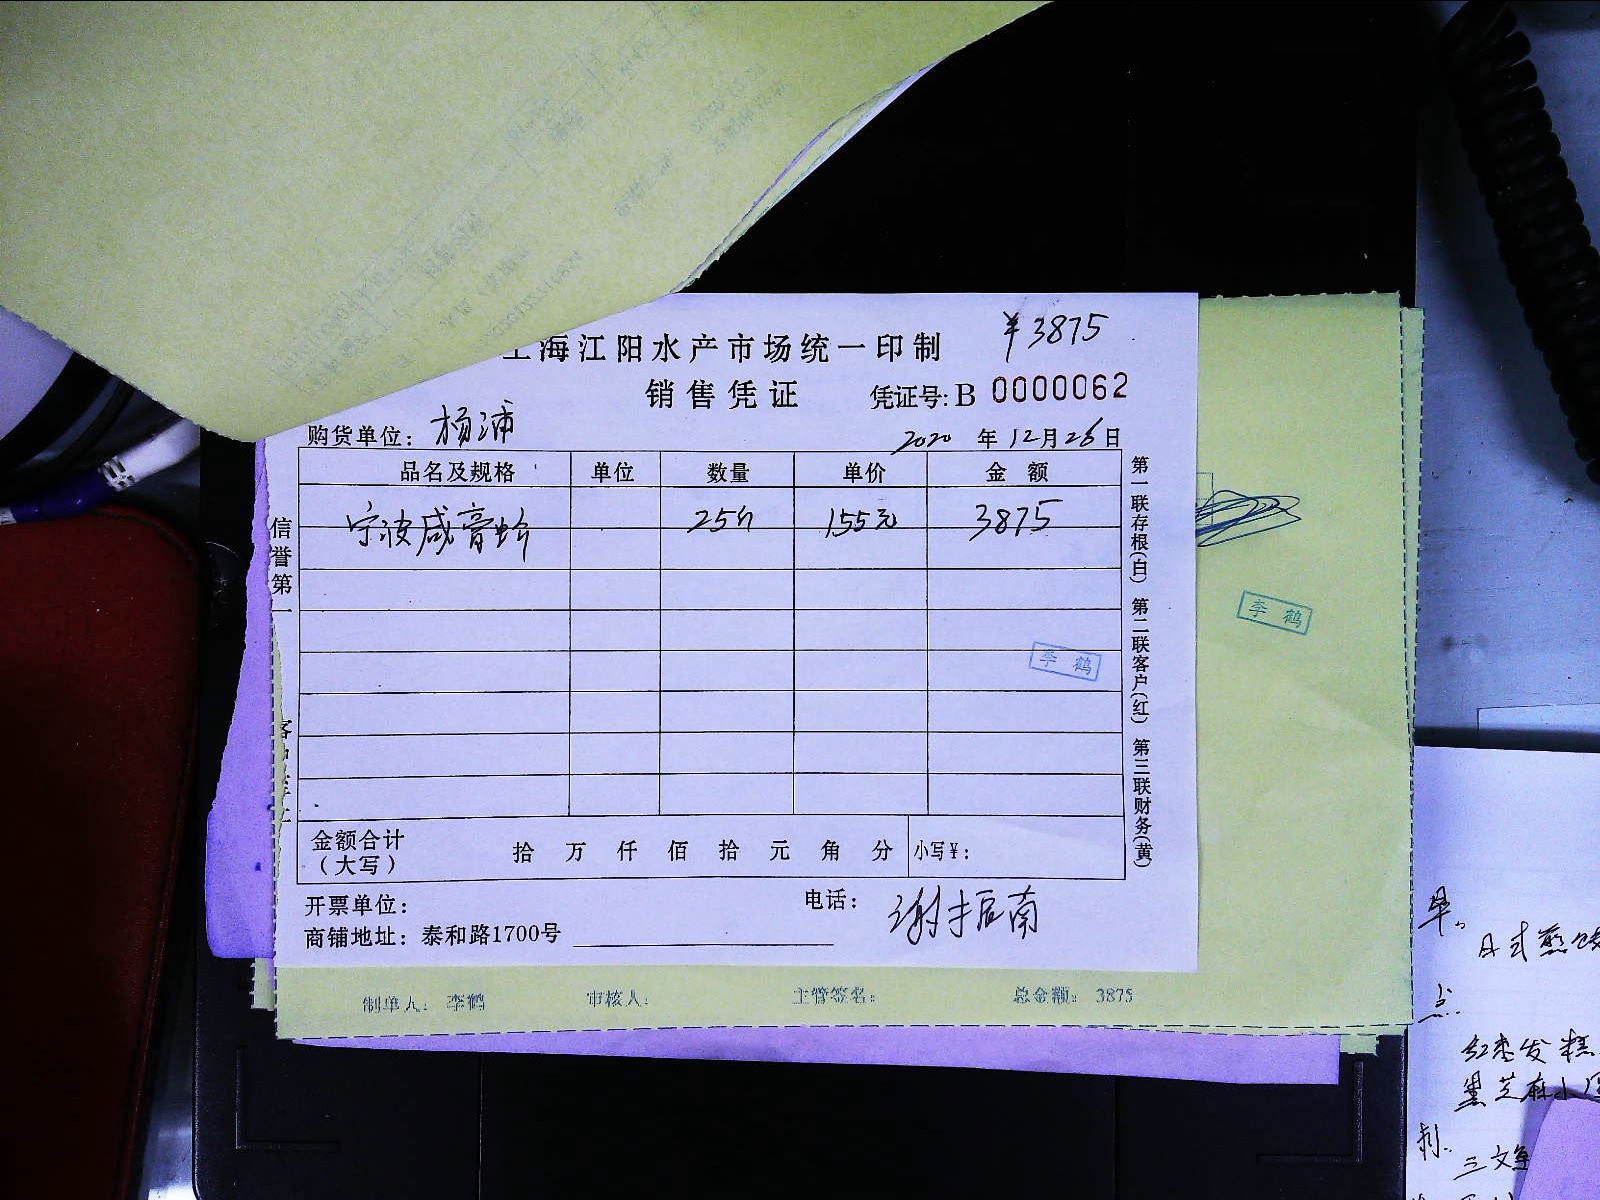 ¥3875
上海江阳水产市场统一印制
销售凭证
凭证号: B 0000062
购货单位: 杨浦
2020 年 12月 26日
品名及规格 单位 数量 单价 金额
宁波咸膏蚧 25斤 155元 3875
信誉第一
李鹤
李鹤
第一联存根(白) 第二联客户(红) 第三联财务(黄)
金额合计
(大写)
拾 万 仟 佰 拾 元 角 分 小写¥:
开票单位: 电话: 谢振南
商铺地址: 泰和路1700号
制单人: 李鹤 审核人: 主管签名: 总金额: 3875
早。
日式煎
点.
红枣发糕
黑芝麻小
三文鱼